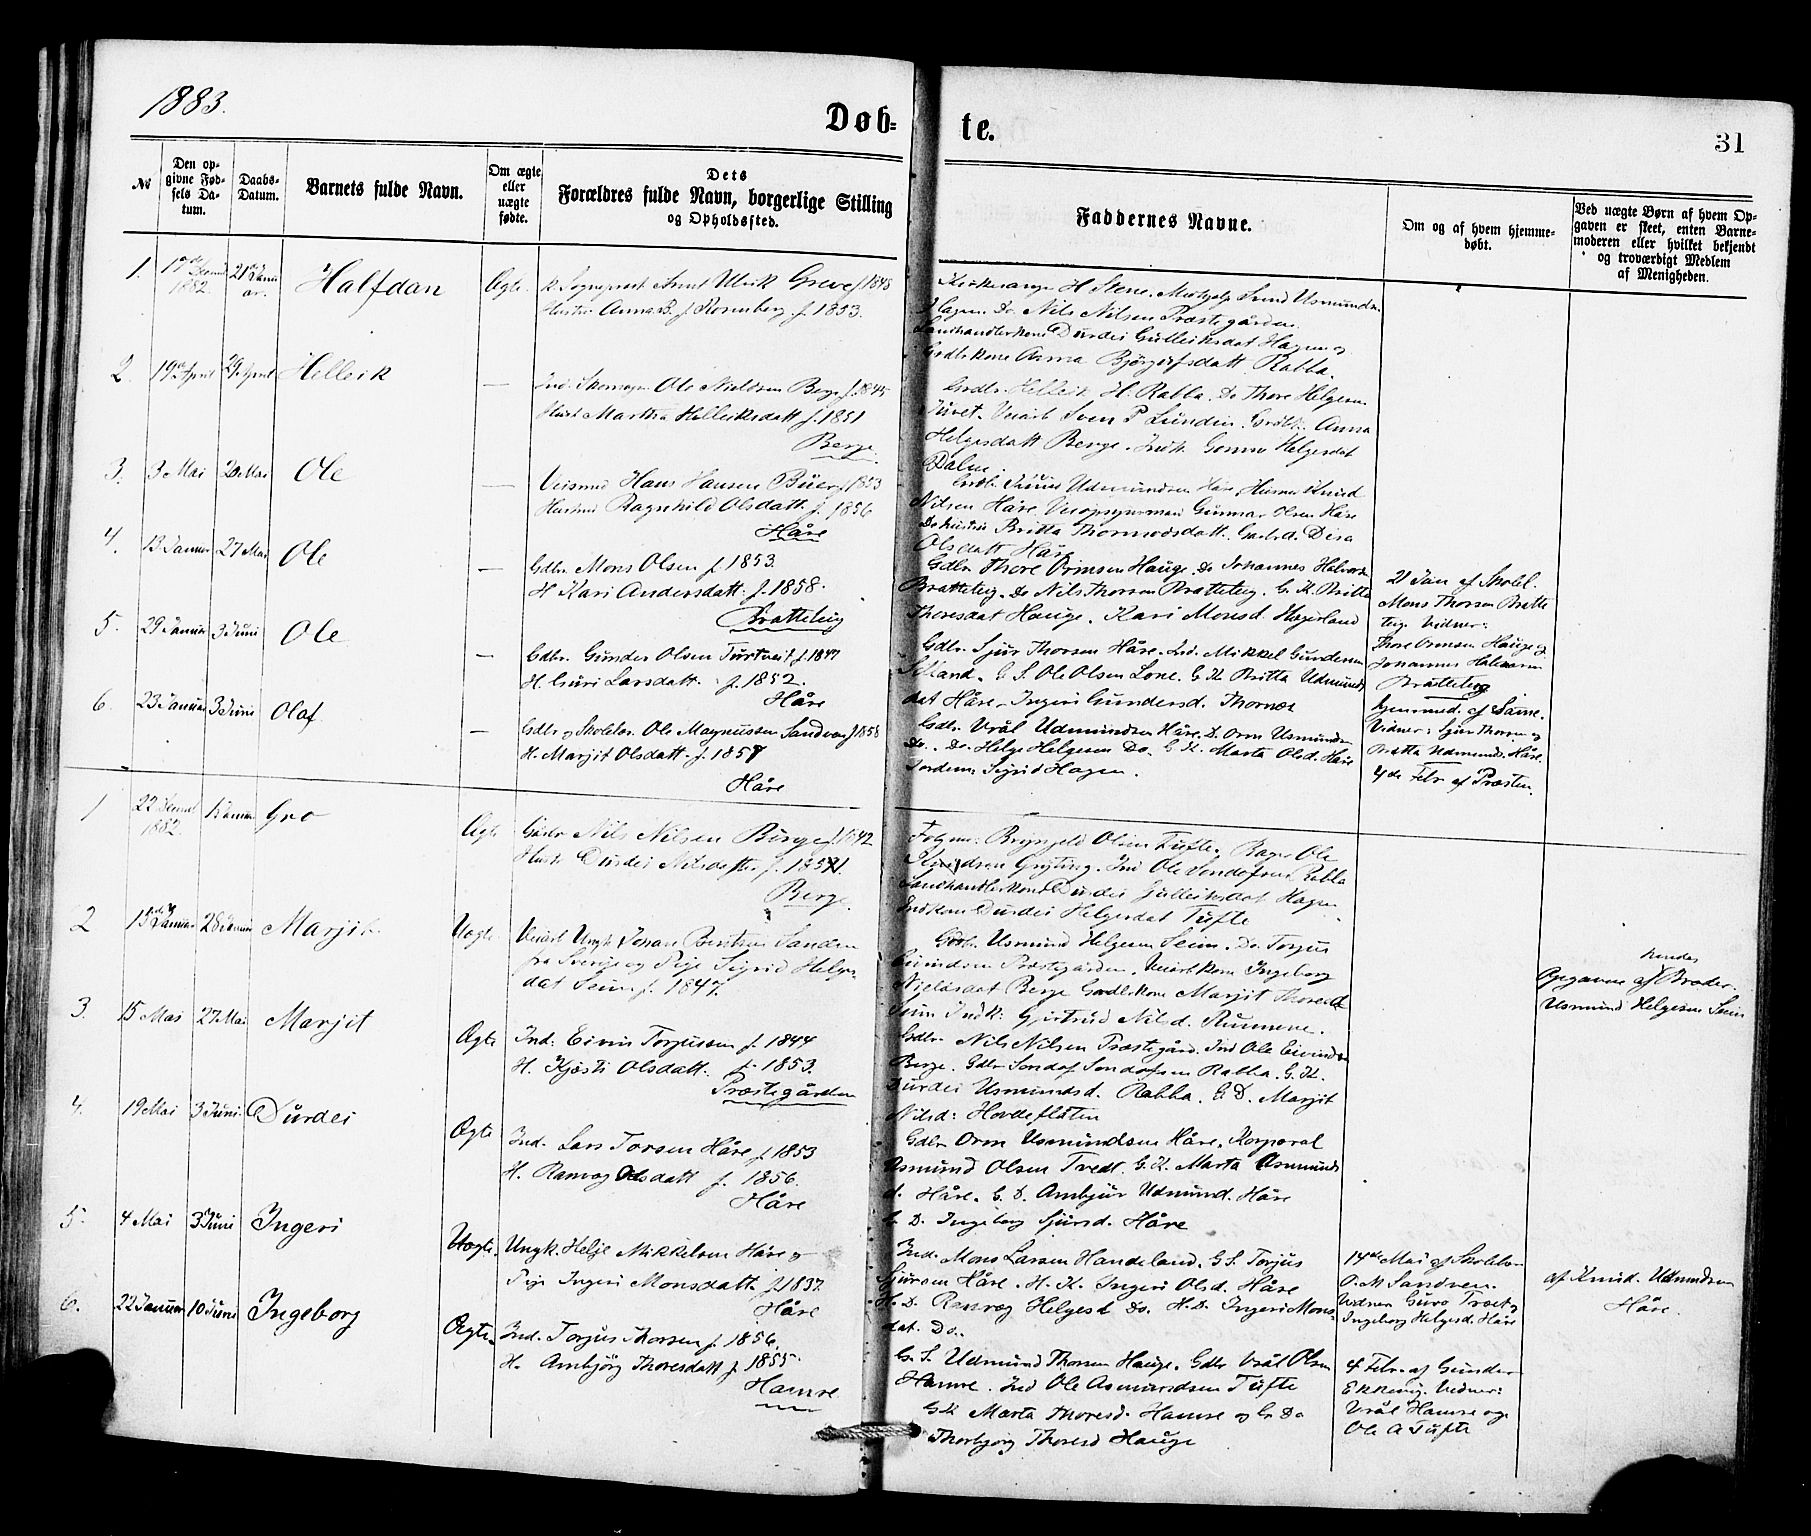 1883.
Døb-
te.
31
№
Den op-
givne Fød-
sels Da-
tum.
Daabs-
Datum.
Barnets fulde Navn.
Om ægte
eller
uægte
fødte.
Dets
Forældres fulde Navn, borgerlige Stilling
og Opholdssted.
Faddernes Navne.
Om og af hvem hjemme-
døbt.
Ved uægte Børn af hvem Op-
gaven er skeet, enten Barne-
moderen eller hvilket bekjendt
og troværdigt Medlem
af Menigheden.
1.
1882.
Halfdan
Ægte
Greve f 1848
Hustru Anna B. f. Rosenberg. f. 1853.
H Stene.
Hagen. Do Nils Nilsen Præstegården.
Landhandlerkone Durdei Gulleiksdat Hagen og
Gdbrkone Anna Bjørgulfsdatt Rabba.
2.
19 April
29 April
Helleik
—
Ole Nielsen Berge f. 1845
Hust Martha Helleiksdatt f. 1851
Berge
Grdbr. Helleik H. Rabba. Do Thore Helgesen
Juvet. Sven P Lunden. Anna
Helgesdatt Berge. Gonne Helgesdat
Dalen.
3.
3 Mai
20 Mai
Ole
—
Hans Hansen Buer f 1853
Hustru Ragnhild Olsdatt. f. 1856
Håre
Udmundsen Håre, Husm. Knud
Nilsen Håre Gunnar Olsen Håre
Do hustru Britta Thormodsdatt.
Olsdatt Håre
4.
13 Januar
27 Mai
Ole
—
Gdbr. Mons Olsen f. 1853.
H Kari Andersdatt: f. 1858.
Bratteteig
Gdbr Thore Ormsen Hauge. Do Johannes Halvorsen
Bratteteig. Do Nils Thorsen Bratteteig. G. K. Britta
Thoresdat Hauge. Kari Monsd. Hægerland
21 Jan af Skolel.
Mons Thorsen Bratte
teig. Vidner:
Thore Ormsen Hauge og
Johannes Halvorsen
Bratteteig
5.
29 Januar
3 Juni
Ole
—
Gdbr. Gunder Olsen Turtveit f. 1847
H. Guri Larsdatt. f. 1852.
Håre
Gdbr. Sjur Thorsen Håre. Ind. Mikkel Gundersen
Selland. G. S. Ole Olsen Lone. G. K Britta Udmunds
dat Håre. Ingeri Gundersd. Thornæs
Hjemmed. af Samme.
Vidner: Sjur Thorsen og
Britta Udmunds. Håre.
6.
23 Januar
3 Juni
Olaf
—
Gdbr og Skolelær. Ole Magnussen Sandven f 1858
H. Marjit Olsdatt. f. 1857
Håre
Gdbr. Vrål Udmundsen Håre. D. Orm Usmundsen
Do. Do. Helge Helgesen Do. G. K. Marta Olsd. Håre
Jordem: Sigrid Hagen.
4de Febr af Præsten.
1
1882.
1 Januar
Gro
Ægte
Gdbr Nils Nilsen Berge f. 1842
Hust. Durdei Nilsdatter f. 1851.
Berge
Brynjulf Olsen Tufte. Ole
Ind Ole Sondofsen Rabba
Landhandlerkone Durdei Gulleiksdat Hagen
Indkone Durdei Helgesdat Tufte
2
13de Januar
28 Januar
Marjit
Uægte
Ungk Johan Berntsen Sanden
fra Sverige og Pige Sigrid Helges
dat Seim f. 1847.
Gdbr. Usmund Helgesen Seim. Do Torjus
Eivindsen Præstegården. Ingeborg
Nielsdat Berge Grdbrkone Marjit Thoresd
Seim Indk: Gjertrud Nilsd. Rummene.
hendes
Opgaven af Broder
Usmund Helgesen Seim
3.
15 Mai
27 Mai
Marjit
Ægte
Ind: Eivin Torjussen f. 1844
H. Kjøsti Olsdatt. f. 1853.
Præstegården
Gdbr. Nils Nilsen Præstegård. Ind Ole Eivindsen
Berge. Gdbr Sondof Sondofsen Rabba. G. K.
Durdei Usmundsd. Rabba. G. D. Marjit
Nilsd: Hovdeflåten
4.
19 Mai
3 Juni.
Durdei
Ægte
Ind. Lars Torsen Håre f. 1853
H. Ranvog Olsdatt f. 1856.
Håre
Gdbr Orm Usmundsen Håre. Korporal
Asmund Olsen Tvedt. G. K. Marta Asmunds
d. Håre. G. D. Ambjør Udmund. Håre
G. D. Ingeborg Sjursd. Håre
5.
4 Mai
3 Juni
Ingeri
Uægte.
Ungk. Helje Mikkelsen Håre og
Pige Ingeri Monsdatt. f 1837
Håre
Ind. Mons Larsen Handeland. G S. Torjus
Sjursen Håre. H. K. Ingeri Olsd. Håre
H. D. Ranvæg Helgesd Do. H. D. Ingeri Mons
dat. Do.
14de Mai af Skolelær.
O. M Sandven.
Vidner Guro Træet og
Ingeborg Helgesd. Håre
af Knud. Udmundsen
Håre.
6.
22 Januar
10 Juni
Ingeborg
Ægte.
Ind. Torjus Thorsen f. 1856.
H. Ambjörg Thoresdatt f. 1855.
Hamre
G. S. Udmund Thorsen Hauge. Gdbr Vrål Olsen
Hamre. Ind Ole Asmundsen Tufte
G K Marta Thoresd. Hamre og G. D.
Thorbjørg Thoresd Hauge
4 Febr. af Gunder
Ekkeing. Vidner:
Vrål Hamre og
Ole A Tufte